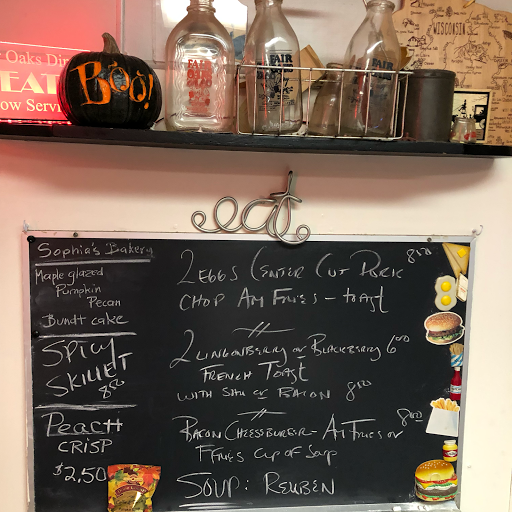 Oaks Di
EAT
ow Servi
Boo!
FAIR
FAIR
WISCONSIN
eat
Sophia's Bakery
Maple glazed
Pumpkin
Pecan
Bundt cake
SPICY
SKILLET
8.00
PEACH
CRISP
$2.50
2 EGGS CENTER CUT PORK 8.00
CHOP AM FRIES - TOAST
2 LINGONBERRY or BLACKBERRY 6.00
FRENCH TOAST
WITH SAU or BACON 8.00
BACON CHEESSBURGER - AM FRIES or 8.00
FRIES CUP OF SOUP
SOUP: REUBEN